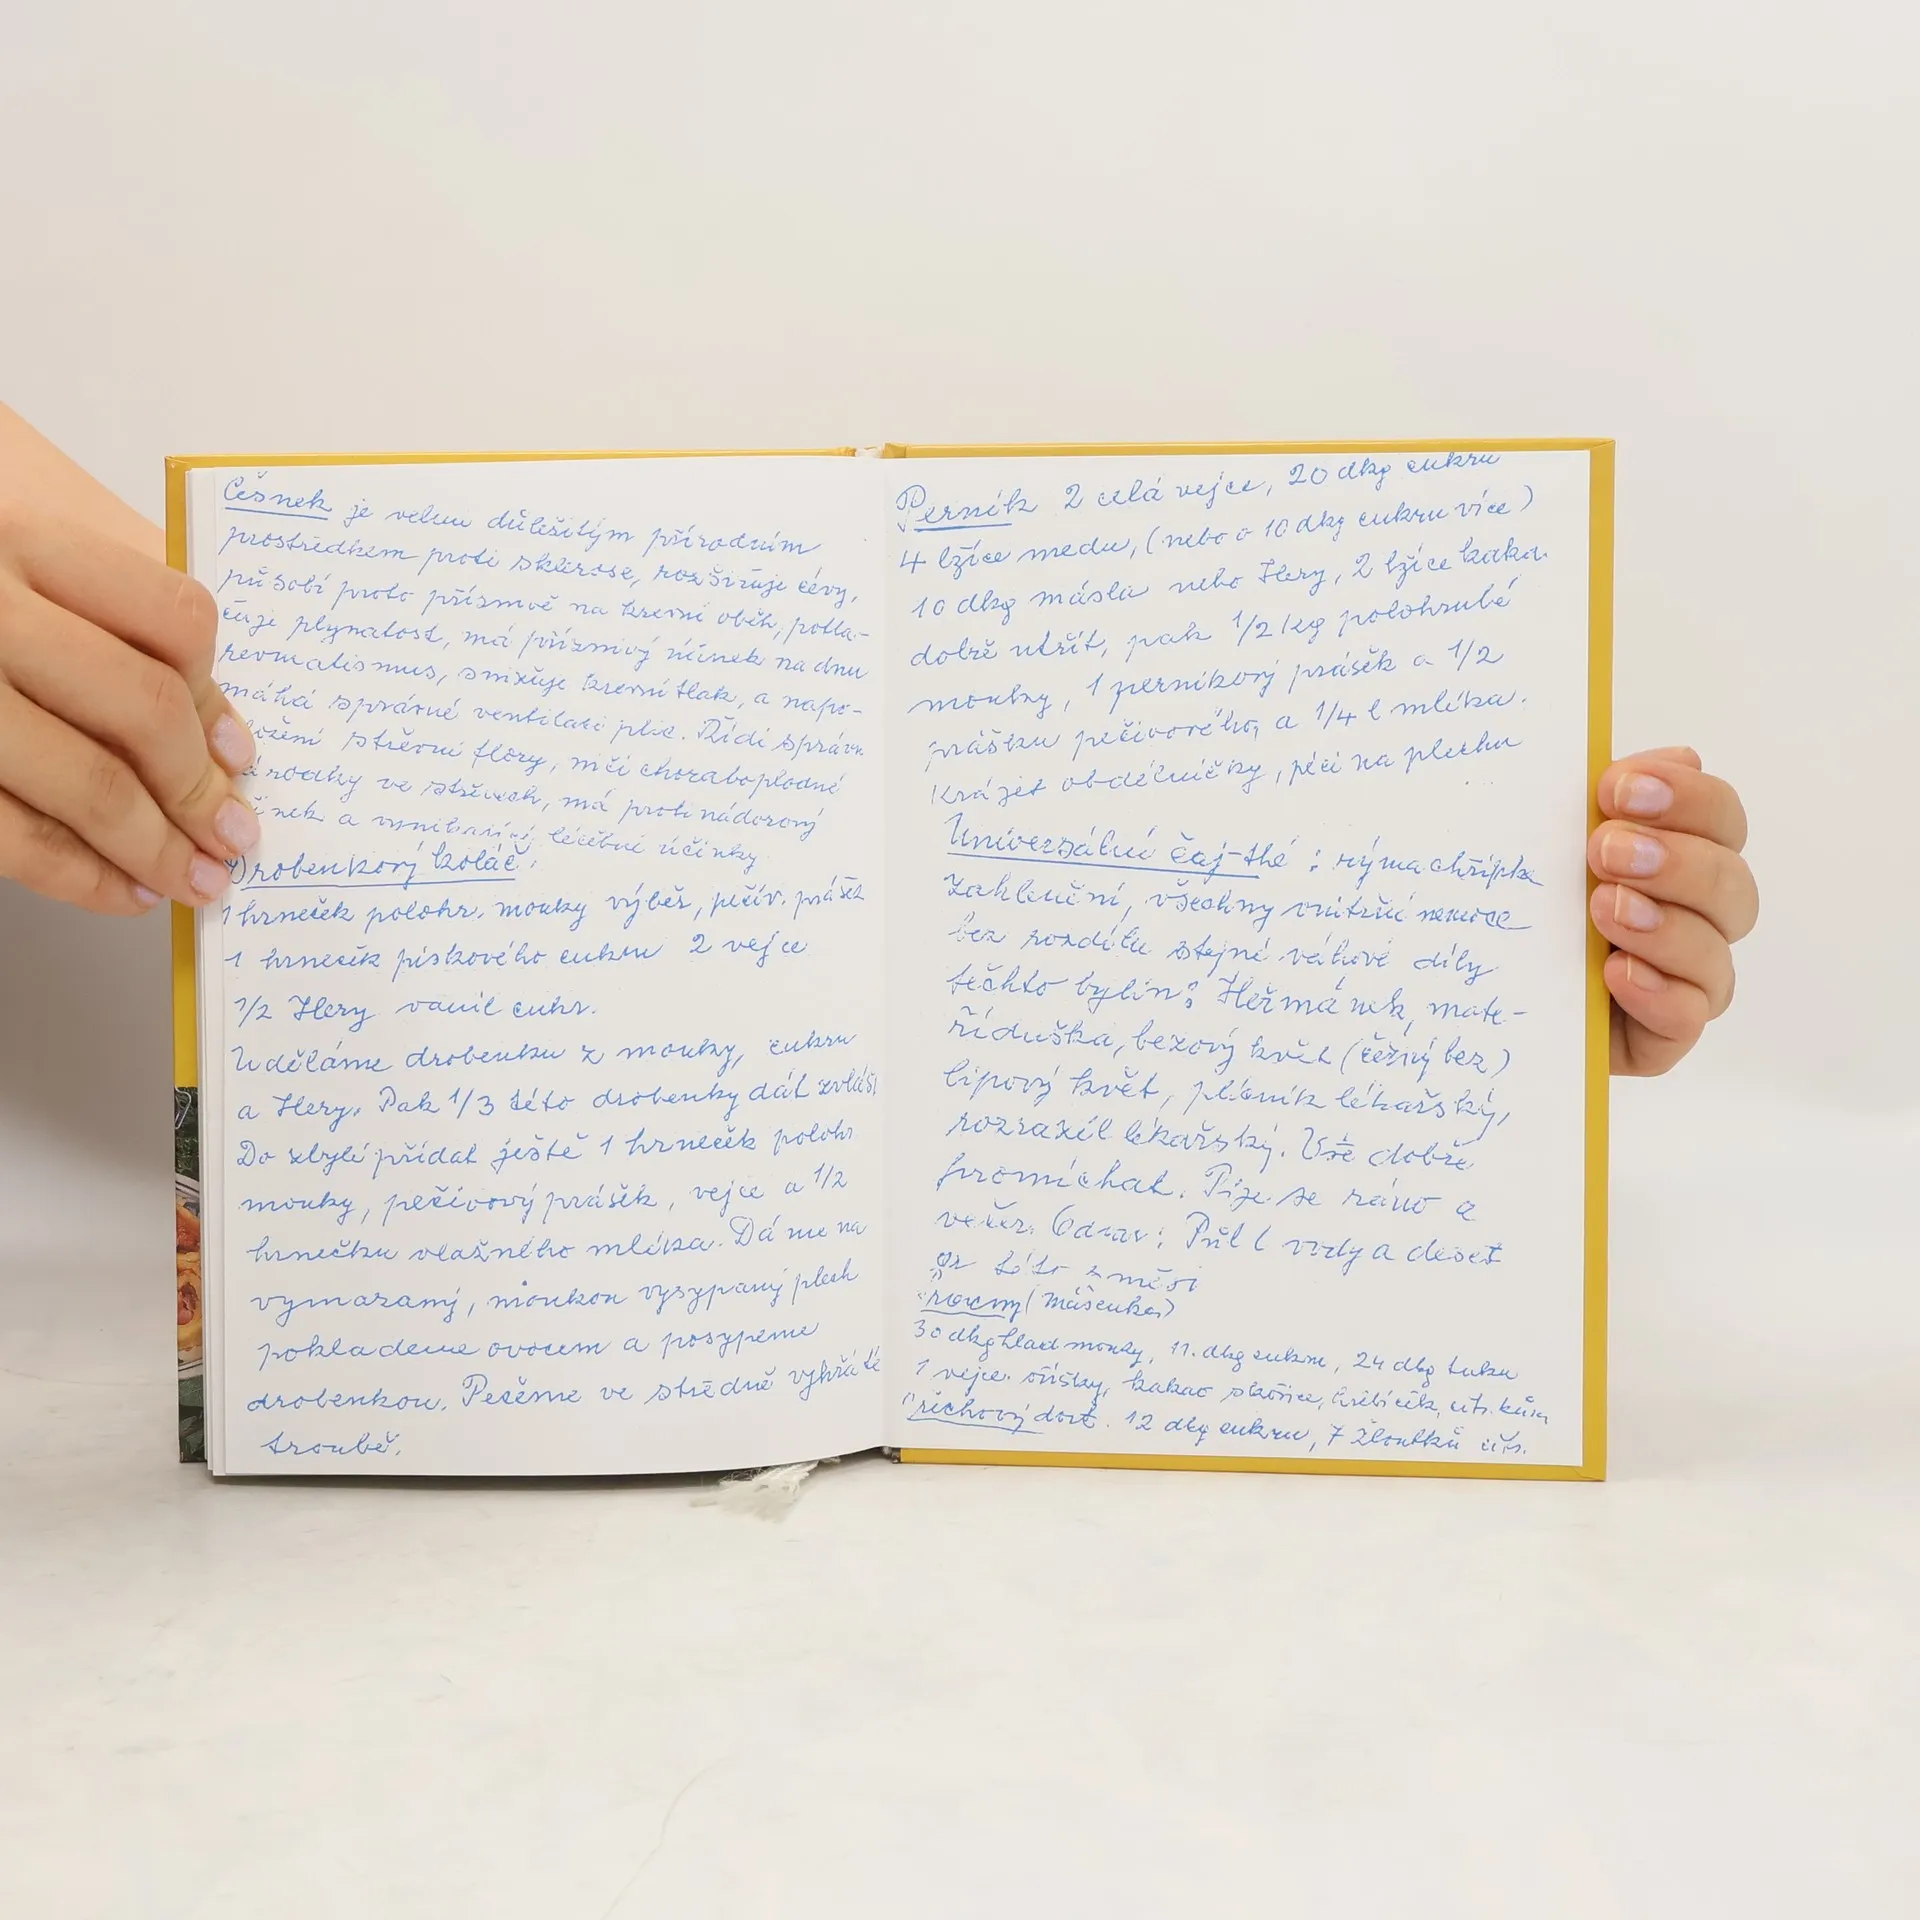 Česnek je velmi důležitým přírodním
prostředkem proti skleróse, rozšiřuje cévy,
působí proto příznivě na krevní oběh, potla-
čuje plynatost, má příznivý účinek na dnu
revmatismus, snižuje krevní tlak, a napo-
máhá správné ventilaci plic. Řídí správn
ložení střevní flory, ničí choroboplodné
zárodky ve střevech, má protinádorový
inek a vynikající léčebné účinky
Drobenkový koláč.
1 hrneček polohr. mouky výběr, pečiv. prášek
1 hrneček pískového cukru 2 vejce
1/2 Hery vanil cukr.
Uděláme drobenku z mouky, cukru
a Hery. Pak 1/3 této drobenky dát zvlášť
Do zbylé přidat ještě 1 hrneček polohr
mouky, pečivový prášek, vejce a 1/2
hrnečku vlažného mléka. Dáme na
vymazaný, moukou vysypaný plech
poklademe ovocem a posypeme
drobenkou. Pečeme ve středně vyhřáté
troubě.
Perník 2 celá vejce, 20 dkg cukru
4 lžíce medu, (nebo o 10 dkg cukru více)
10 dkg másla nebo Hery, 2 lžíce kaka.
dobře utřít, pak 1/2 kg polohrubé
mouky, 1 perníkový prášek a 1/2
prášku pečivového, a 1/4 l mlíka.
Krájet obdélníčky, péci na plechu
Univerzální čaj-thé : rýma chřipka
zahlenění, všechny vnitřní nemoce
bez rozdílu stejné váhové díly
těchto bylin: Heřmánek, mate-
říduška, bezový květ (černý bez)
lipový květ, plicník lékařský,
rozrazil lékařský. Vše dobře
promíchat. Pije se ráno a
večer. Odvar: Půl l vody a deset
gr této směsi
(Mášenka)
30 dkg hlad mouky, 11. dkg cukru, 24 dkg tuku
1 vejce. oříšky, kakao skořice, hřebíček, citr. kůra
Ořechový dort. 12 dkg cukru, 7 žloutků citr.